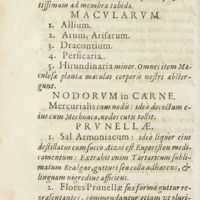 tissimum ad membra tabida.
MACULARUM.
1. Allium.
2. Arum, Arisarum.
3. Dracontium.
4. Persicaria.
5. Hirundinaria minor. Omnes item Ma-
culosæ plantæ maculas corporis nostri abster-
gunt.
NODORUM in CARNE.
Mercurialis cum nodis: ideo decoctum e-
jus cum Mechoaca, nodos cutis tollit.
PRUNELLÆ.
1. Sal Armoniacum: ideo liquor ejus
destillatus cum succo Aizoi est Euporiston medi-
camentum: Extrahit enim Tartaricum subli-
matum Realgar, gutturi seu collo adhærens, &
linguam nigredine afficiens.
2. Flores Prunellæ suæ formâ guttur repræ-
sentantes, commendantur etiam ut pluri-